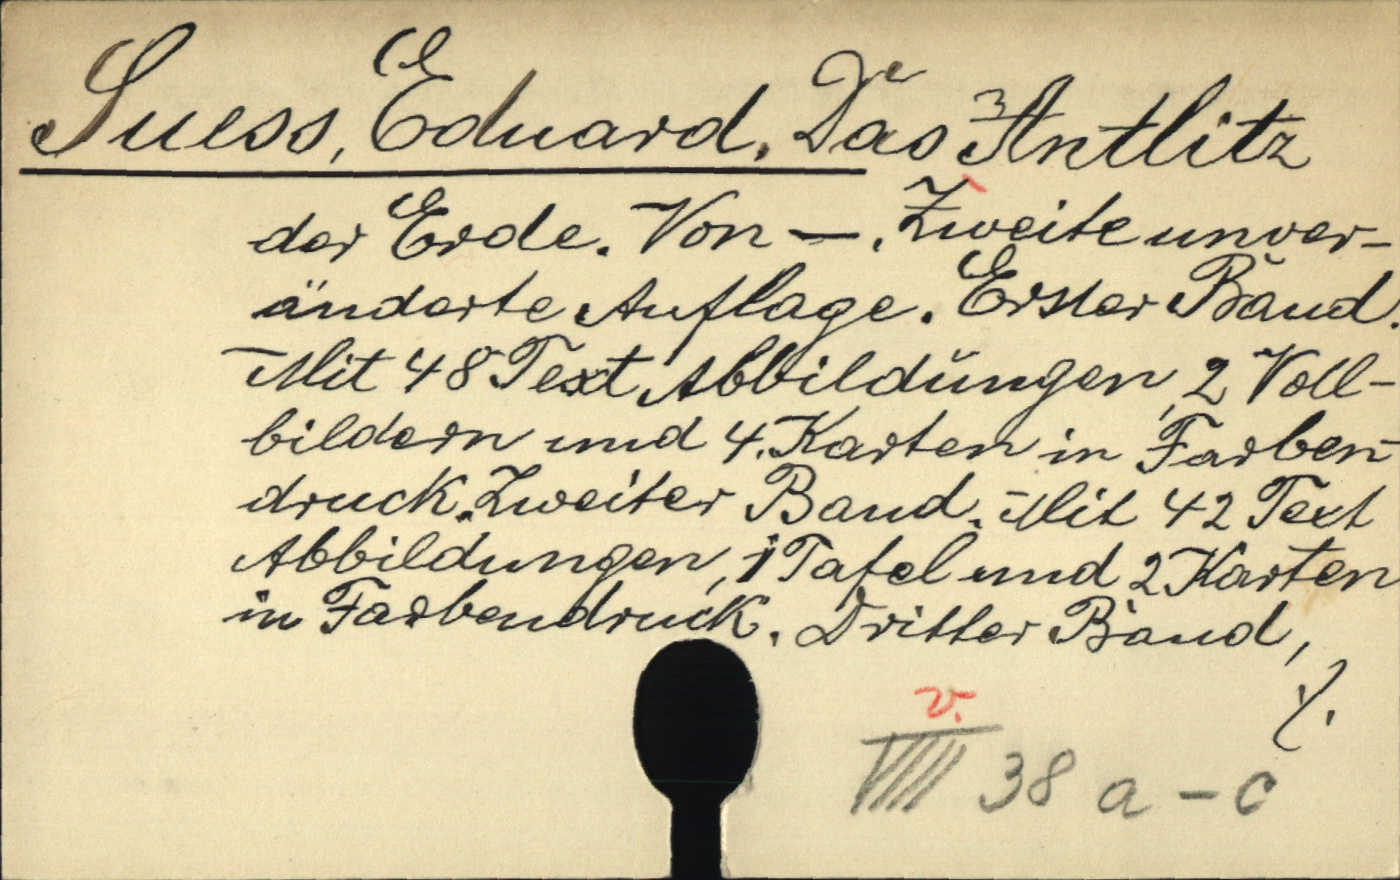 Suess, Eduard. Das Antlitz
der Erde. Von —. Zweite unver-
änderte Auflage. Erster Band.
Mit 48 Text Abbildungen, 2 Voll-
bildern und 4. Karten in Farben-
druck. Zweiter Band. Mit 42 Text
Abbildungen, 1 Tafel und 2 Karten
in Farbendruck. Dritter Band,
./.
v.
VIII 38 a - c